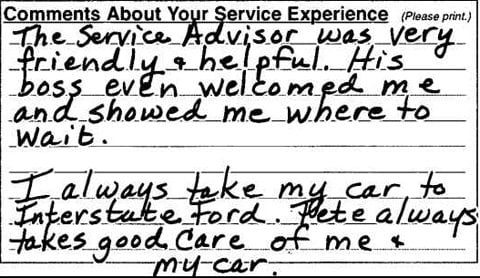 Comments About Your Service Experience (Please print.)
The Service Advisor was very
friendly & helpful. His
boss even welcomed me
and showed me where to
wait.
I always take my car to
Interstate Ford. Pete always
takes good care of me &
my car.